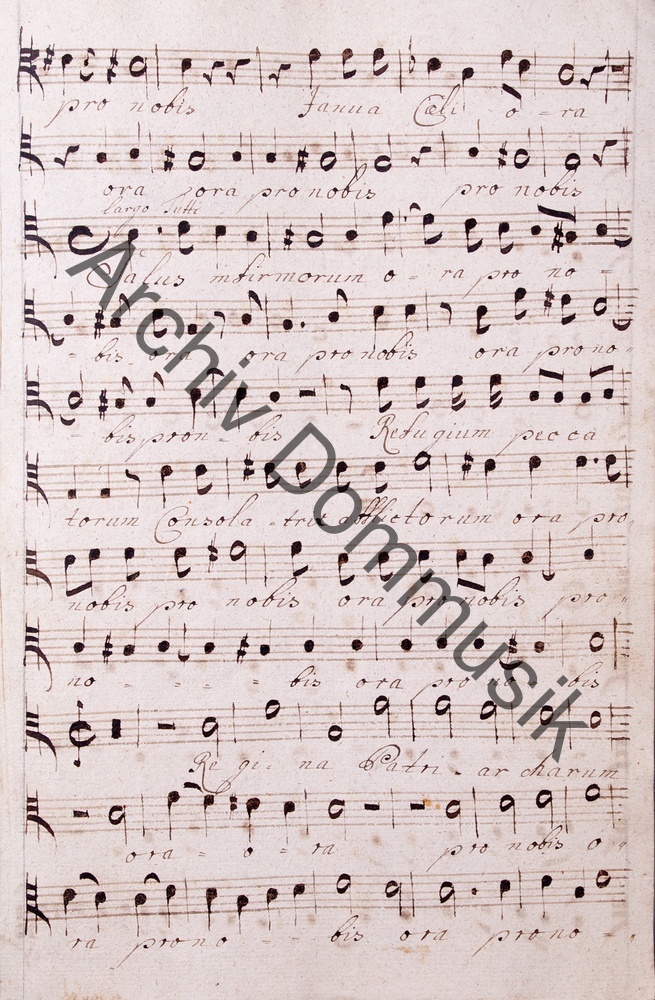 pro nobis Janua Cœli o = ra
ora ora pro nobis pro nobis
largo Tutti
Salus infirmorum o - ra pro no =
- bis ora ora pro nobis ora pro no -
- bis pron - bis Refugium pecca
torum Consola - trix afflictorum ora pro
nobis pro nobis ora pro nobis pro
no - = - = bis ora pro no bis
Re gi - na Patri - ar charum
ora = o - ra pro nobis o
ra pro no - - bis ora pro no =
Archiv Dommusik